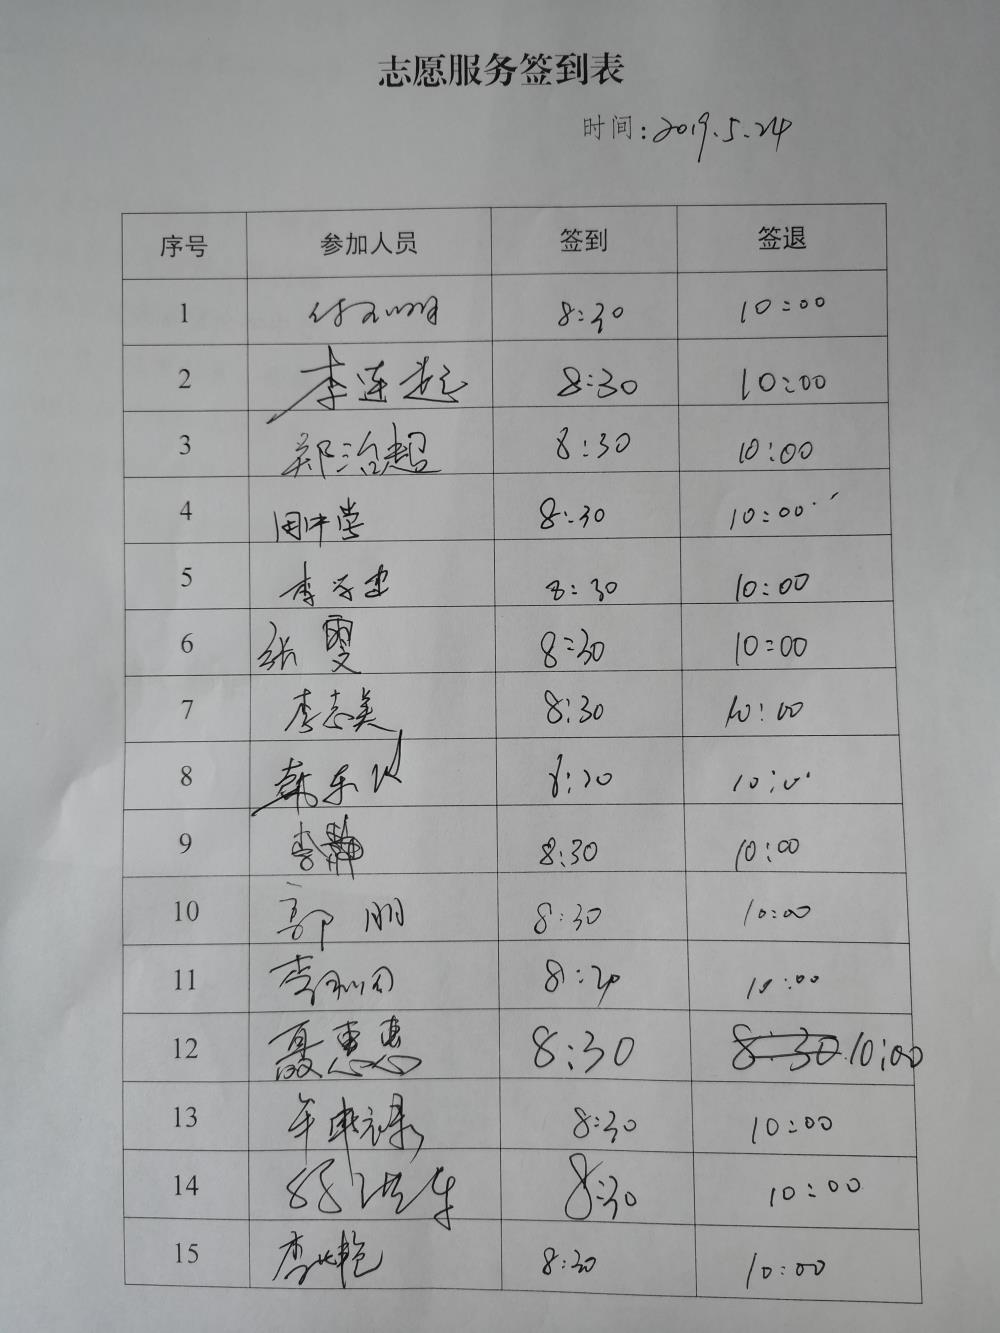 志愿服务签到表
时间:2019.5.24
序号 参加人员 签到 签退
1 8:30 10:00
2 李连超 8:30 10:00
3 郑治超 8:30 10:00
4 田中堂 8:30 10:00
5 李学忠 8:30 10:00
6 张雯 8:30 10:00
7 李志美 8:30 10:00
8 韩东 8:30 10:00
9 李静 8:30 10:00
10 郭朋 8:30 10:00
11 李 8:30 10:00
12 聂惠惠 8:30 8:30 10:00
13 8:30 10:00
14 8:30 10:00
15 李艳 8:30 10:00